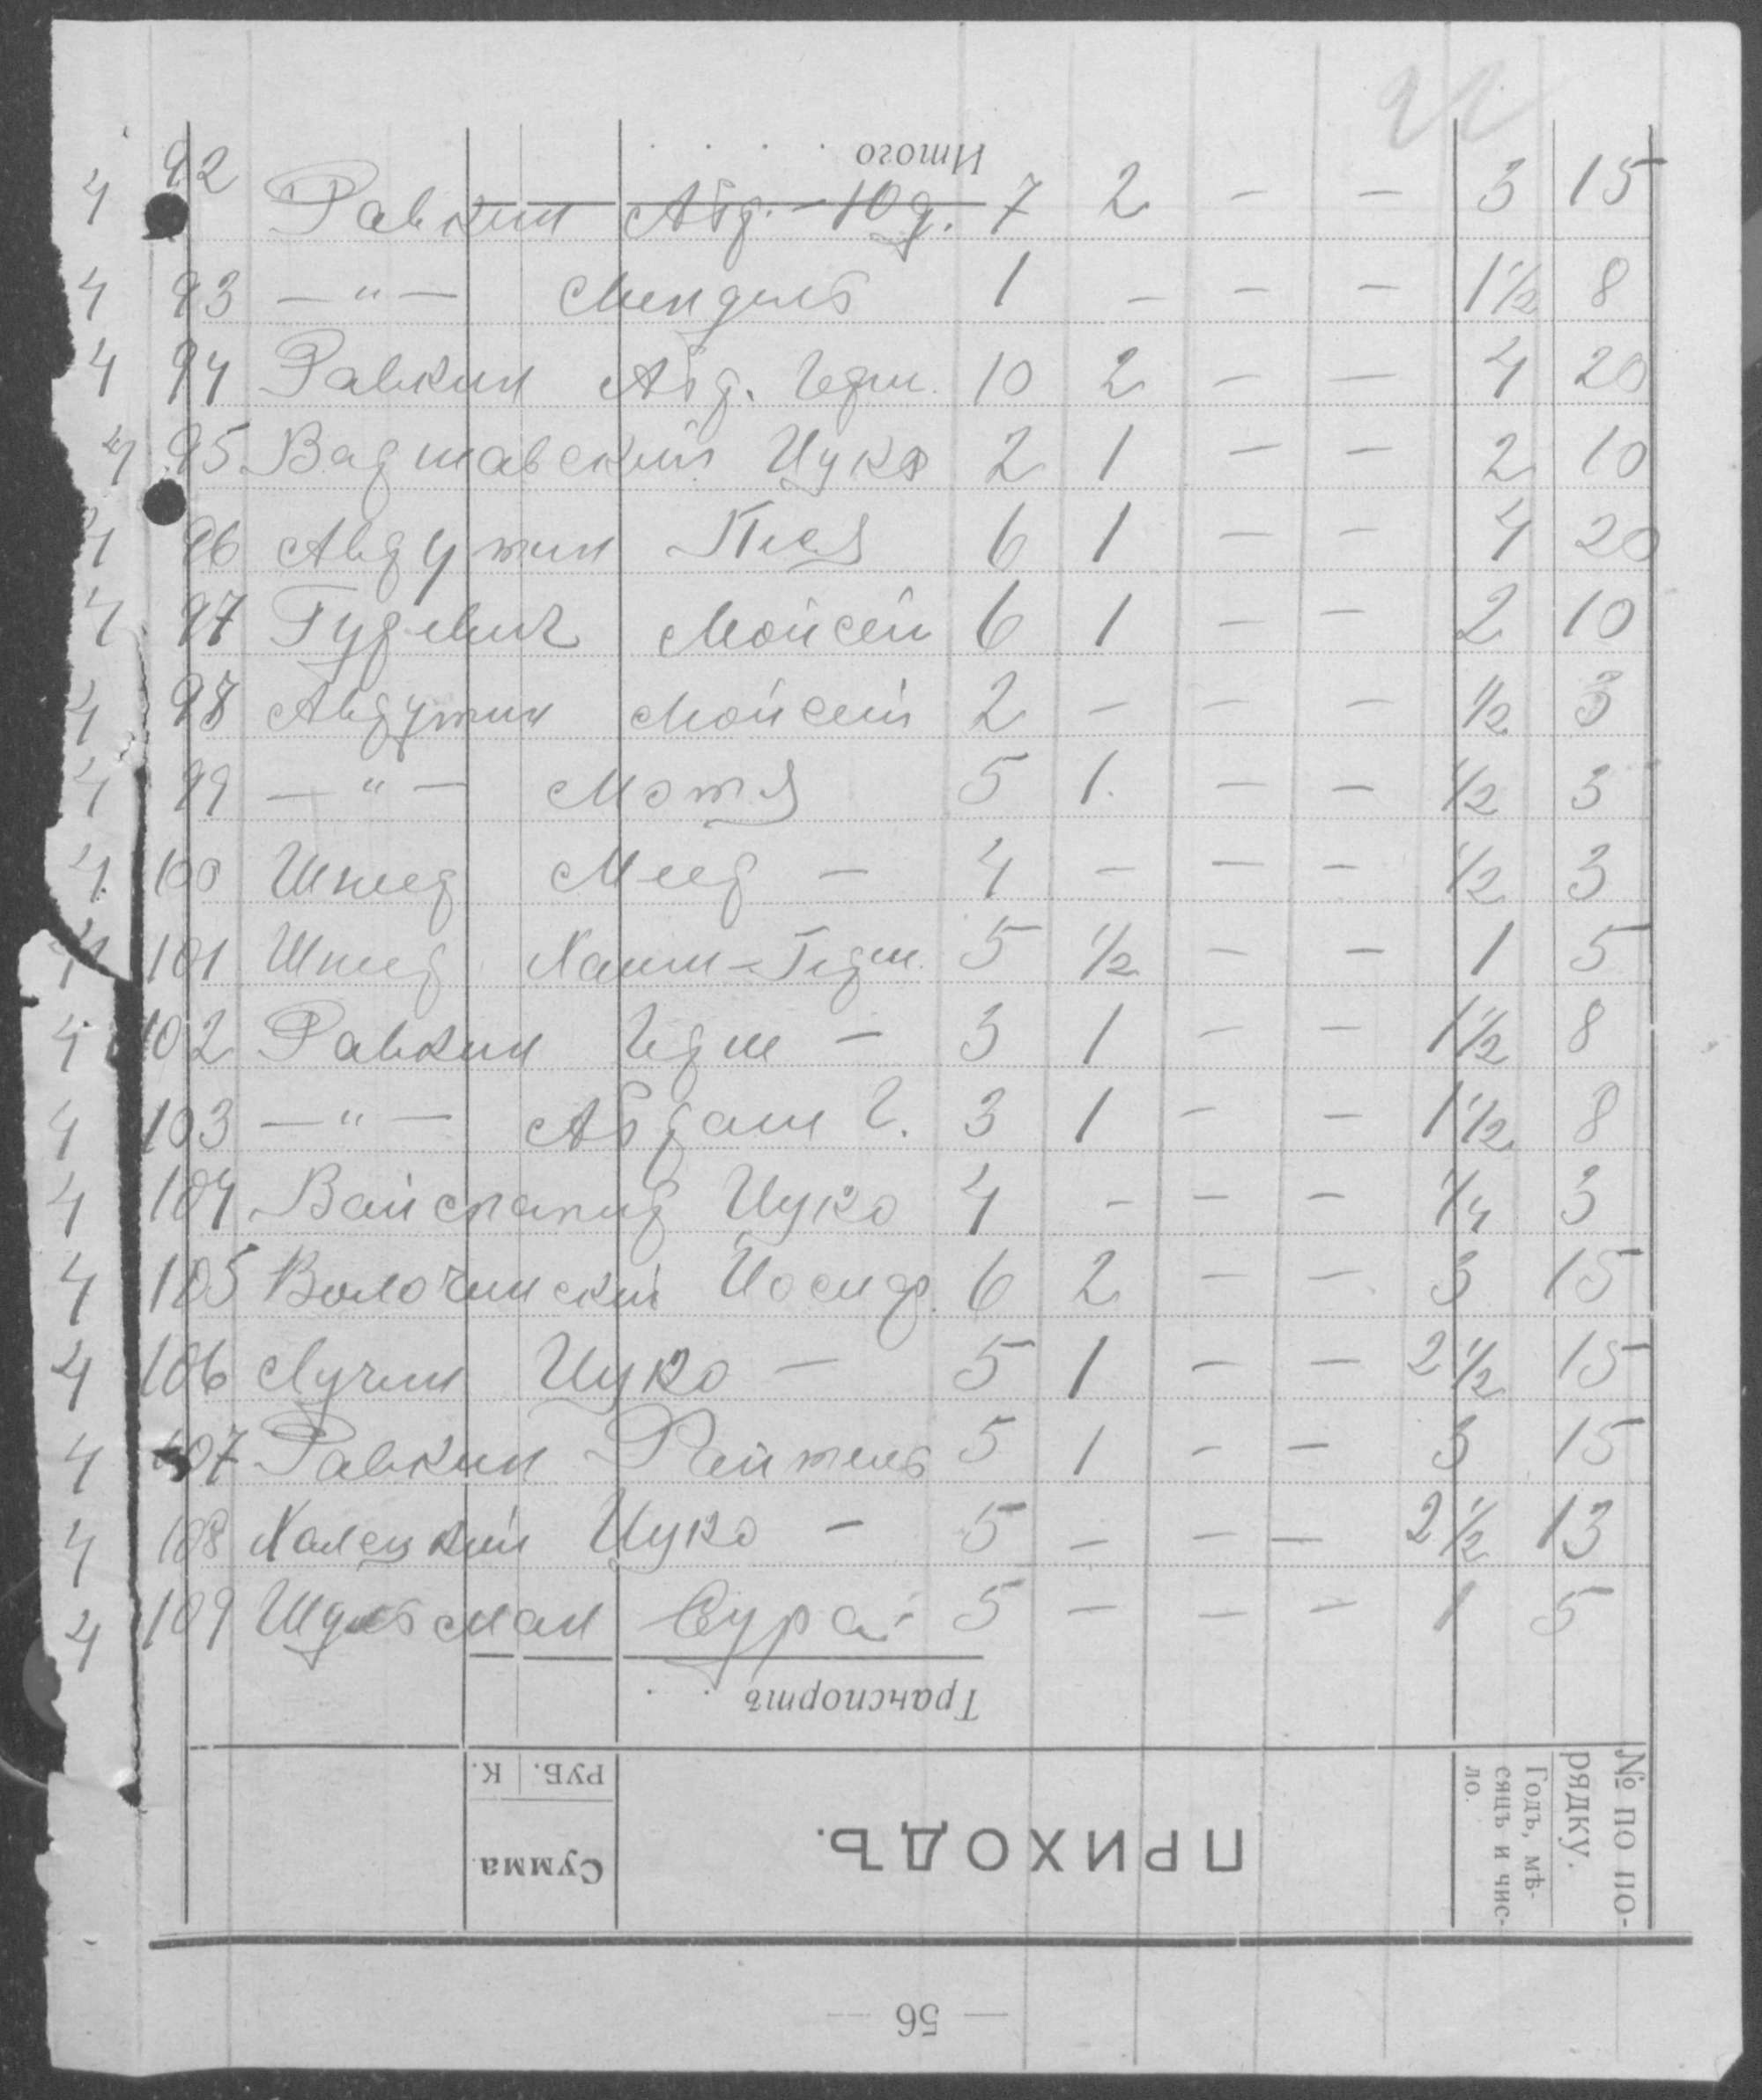 22
Итого . . . .
4 92 Равкин Абр.-Юд. 7 2 — — 3 15
4 93 —"— Мендель 1 — — — 1½ 8
4 94 Равкин Абр. Герш. 10 2 — — 4 20
4 95 Варшавский Ицко 2 1 — — 2 10
4 96 Аврутин Песя 6 1 — — 4 20
4 97 Гуревич Мойсей 6 1 — — 2 10
4 98 Аврутин Мойсей 2 — — — ½ 3
4 99 —"— Мотя 5 1 — — ½ 3
4 100 Шнеер Меер — 4 — — — ½ 3
4 101 Шнеер Хаим-Герш. 5 ½ — — 1 5
4 102 Равкин Герш — 3 1 — — 1½ 8
4 103 —"— Абрам Г. 3 1 — — 1½ 8
4 104 Ицко 4 — — — ¼ 3
4 105 Волочинский Йосиф. 6 2 — — 3 15
4 106 Лучин Ицко — 5 1 — — 2½ 15
4 107 Равкин Файтель 5 1 — — 3 15
4 108 Халецкий Ицко — 5 — — — 2½ 13
4 109 Шульсман Сура - 5 — — — 1 5
Транспортъ . .
№ по порядку.
Годъ, мѣсяцъ и число.
ПРИХОДЪ.
Сумма.
РУБ. К.
— 56 —